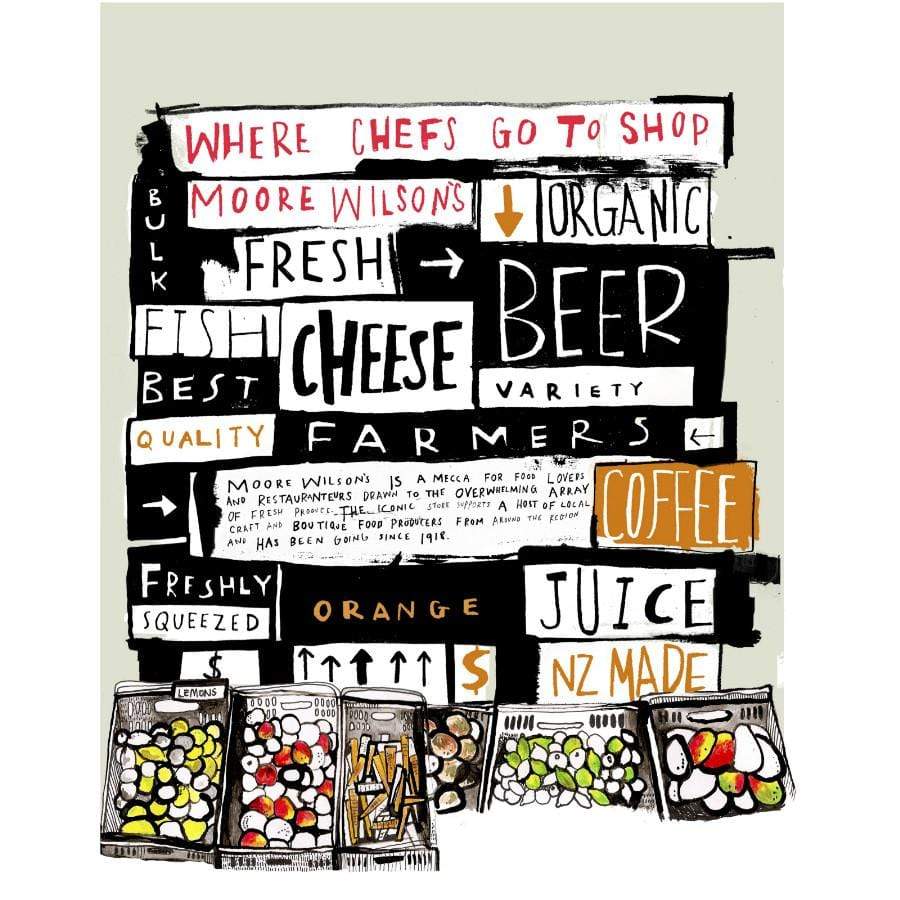 WHERE CHEFS GO TO SHOP
BULK
MOORE WILSON'S
ORGANIC
FRESH
BEER
FISH
CHEESE
BEST
VARIETY
QUALITY
FARMERS
MOORE WILSON'S IS A MECCA FOR FOOD LOVERS
AND RESTAURANTEURS DRAWN TO THE OVERWHELMING ARRAY
OF FRESH PRODUCE. THE ICONIC STORE SUPPORTS A HOST OF LOCAL
CRAFT AND BOUTIQUE FOOD PRODUCERS FROM AROUND THE REGION
AND HAS BEEN GOING SINCE 1918.
COFFEE
FRESHLY
SQUEEZED
ORANGE
JUICE
$
$
NZ MADE
LEMONS